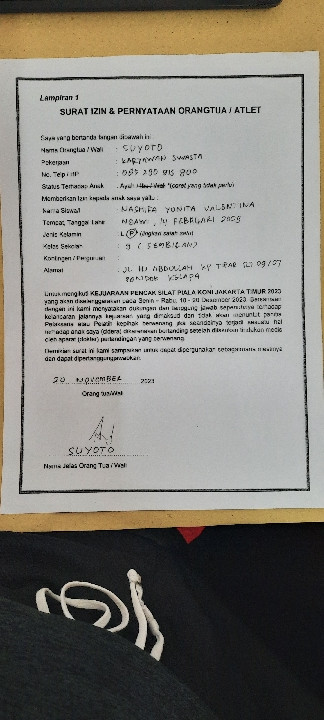 Lampiran 1
SURAT IZIN & PERNYATAAN ORANGTUA / ATLET
Saya yang bertanda tangan dibawah ini:
Nama Orangtua / Wali : SUYOTO
Pekerjaan : KARYAWAN SWASTA
No. Telp / HP :
Status Terhadap Anak : Ayah / Ibu / Wali *(coret yang tidak perlu)
Memberikan izin kepada anak saya yaitu :
Nama Siswa/i : YUNITA VALENTINA
Tempat, Tanggal Lahir : NGAWI, 14 FEBRUARI
Jenis Kelamin : L / P (lingkari salah satu)
Kelas Sekolah : 9 (SEMBILAN)
Kontingen / Perguruan :
Alamat : JL H ABDULLAH RT 09/07
PONDOK KELAPA
Untuk mengikuti KEJUARAAN PENCAK SILAT PIALA KONI JAKARTA TIMUR 2023
yang akan diselenggarakan pada Senin - Rabu, 18 - 20 Desember 2023. Bersamaan
dengan ini kami menyatakan dukungan dan tanggung jawab sepenuhnya terhadap
kelancaran jalannya kejuaraan yang dimaksud dan tidak akan menuntut panitia
Pelaksana atau Pelatih kepihak berwenang jika seandainya terjadi sesuatu hal
terhadap anak saya (cidera) dikarenakan bertanding setelah dilakukan tindakan medis
oleh aparat (dokter) pertandingan yang berwenang.
Demikian surat ini kami sampaikan untuk dapat dipergunakan sebagaimana mestinya
dan dapat dipertanggungjawabkan.
20 November 2023
Orang tua/Wali
SUYOTO
Nama Jelas Orang Tua / Wali